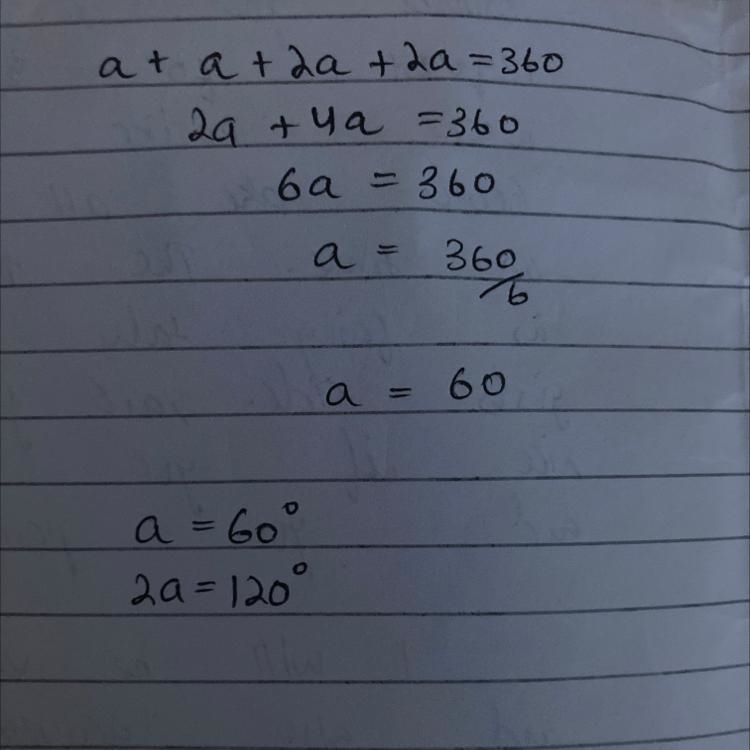 a + a + 2a + 2a = 360
2a + 4a = 360
6a = 360
a = 360/6
a = 60
a = 60°
2a = 120°